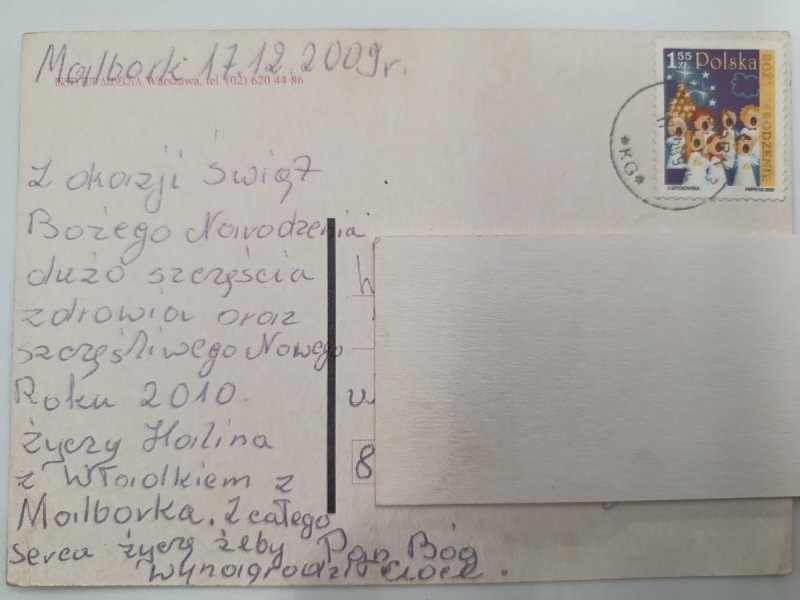 Malbork 17.12.2009r.
INSTYTUT ALBERTA Warszawa, tel. (02) 620 44 86
1 55 zł Polska
BOŻE NARODZENIE
PWPW SA 2009
*KG*
Z okazji świąt
Bożego Narodzenia
dużo szczęścia
zdrowia oraz
szczęśliwego Nowego
Roku 2010
życzy Halina
z Władkiem z
Malborka. Z całego
serca życzę żeby Pan Bóg
wynagrodził ciocę.
8